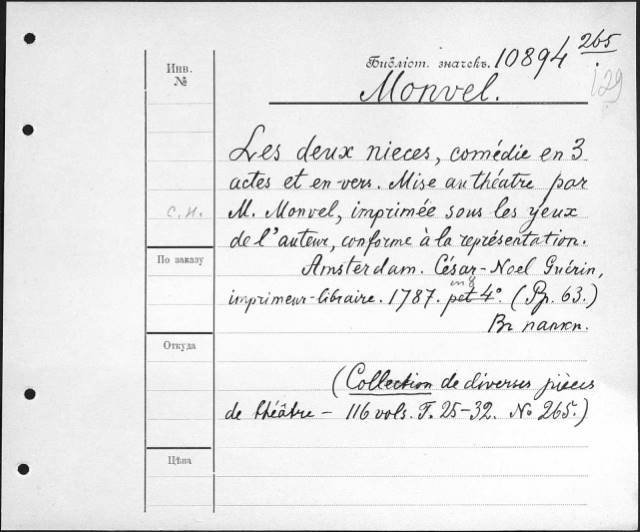 265
Инв. №
Библіот. значекъ. 10894
129
Monvel.
Les deux nieces, comédie en 3
actes et en vers. Mise au théatre par
С. П. M. Monvel, imprimée sous les yeux
de l'auteur, conforme à la représentation.
По заказу
Amsterdam. César-Noel Guérin,
in 8
imprimeur-libraire. 1787. pet 4°. (Pp. 63.)
Въ папкѣ.
Откуда
(Collection de diverses pièces
de théâtre – 116 vols. T. 25–32. No 265.)
Цѣна